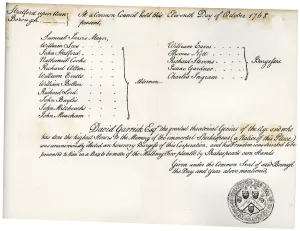 Stratford upon Avon
Borough.
At a Common Council held this Eleventh Day of October 1768.
present,
Samuel Jarvis Mayor,
William
John
Nathaniel Cooke
Richard
William Evetts
William Bolton
Richard Lord
John Baylis
John
John Meacham
Aldermen
William Eaves
Thomas Nott
Richard
James Gardner
Charles Ingram
Burgesses
David Garrick Esqr. the greatest theatrical Genius of the Age and who
has done the highest Honor to the Memory of the immortal Shakespeare a Native of this Place
was unanimously elected an honorary Burgess of this Corporation, and his Freedom ordered to be
presented to him in a Box to be made of the Mulberry Tree planted by Shakespeare's own Hands
Given under the Common Seal of said Borough
the Day and Year above mentioned.